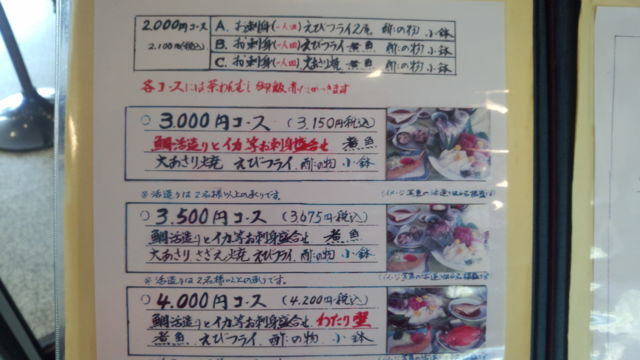 2.000円コース A. お刺身(一人皿)えびフライ2尾 酢の物 小鉢
2.100円(税込) B. お刺身(一人皿)えびフライ 煮魚 酢の物 小鉢
C. お刺身(一人皿)大あさり焼 煮魚 酢の物 小鉢
各コースには茶わんむし 御飯 赤だしがつきます
○ 3.000円コース (3.150円税込)
鯛活造りとイカ等お刺身盛合せ 煮魚
大あさり焼 えびフライ 酢の物 小鉢
※活造りは2名様以上の承りです。
○ 3.500円コース (3.675円税込)
鯛活造りとイカ等お刺身盛合せ 煮魚
大あさり さざえ焼 えびフライ 酢の物 小鉢
※活造りは2名様以上の承りです。
○ 4.000円コース (4.200円税込)
鯛活造りとイカ等お刺身盛合せ わたり蟹
煮魚 えびフライ 酢の物 小鉢